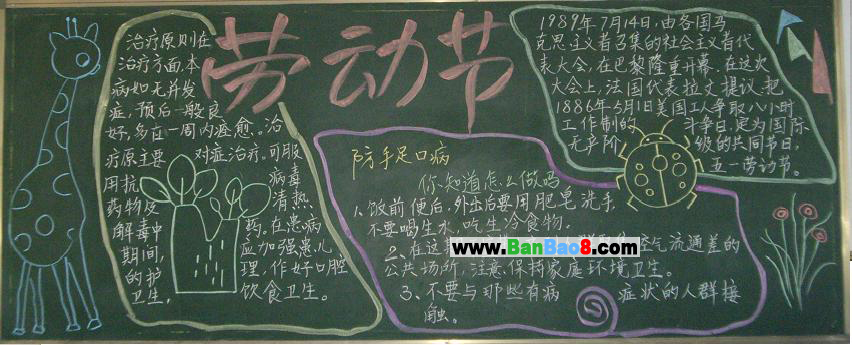 劳动节
治疗原则在
治疗方面,本
病如无并发
症,预后一般良
好,多在一周内痊愈。治
疗原主要 对症治疗。可服
用抗 病毒
药物及 清热
解毒中 药,在患病
期间, 应加强患儿
的护 理,作好口腔
卫生, 饮食卫生。
防手足口病
你知道怎么做吗
1、饭前便后、外出后要用肥皂洗手,
不要喝生水、吃生冷食物。
2、在这 空气流通差的
公共场所,注意保持家庭环境卫生。
3、不要与那些有病 症状的人群接
触。
www.BanBao8.com
1989年7月14日,由各国马
克思主义者召集的社会主义者代
表大会,在巴黎隆重开幕,在这次
大会上,法国代表拉文提议,把
1886年5月1日美国工人争取八小时
工作制的 斗争日,定为国际
无产阶 级的共同节日,
五一劳动节。